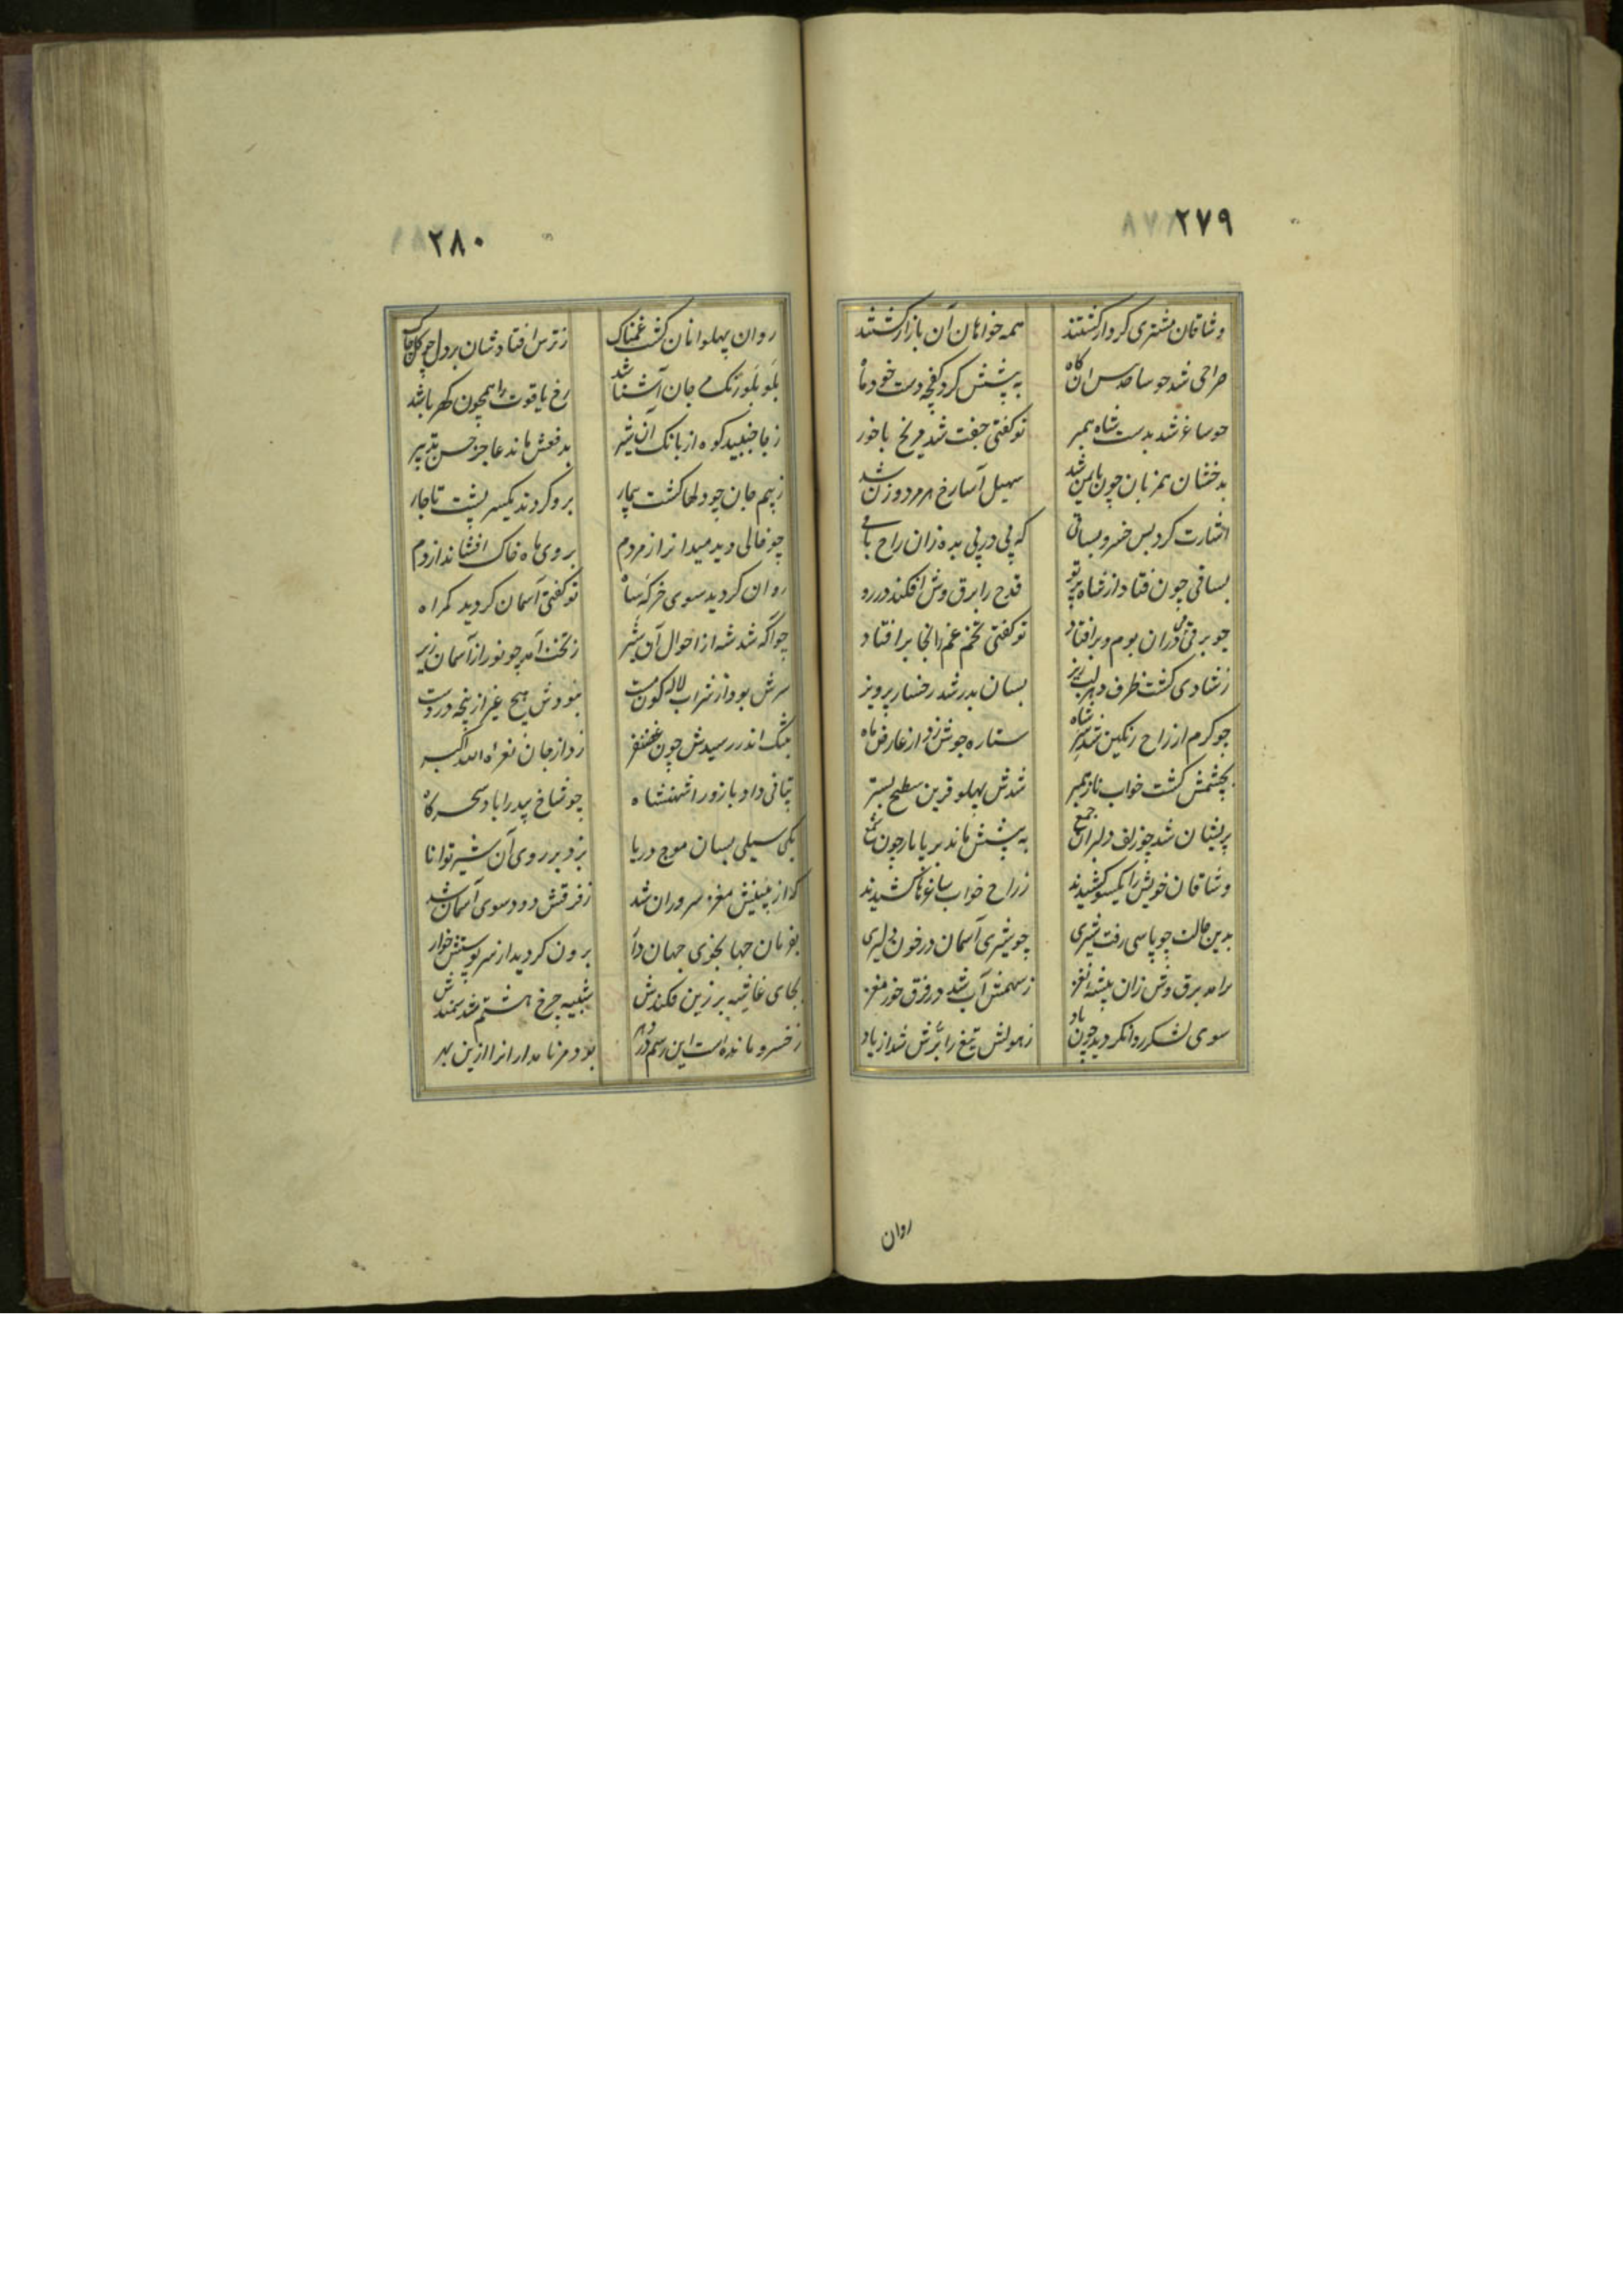 ۲۷۹
وشاقان مشتری کردار گشتند همه خواهان آن بازار گشتند
صراحی شد چو ساجد گاه به پیشش کرد کفچه دست خود ماه
چو ساغر شد بدست شاه همبر تو گفتی جفت شد مریخ با خور
بدخشان همزبان چون شد سهیل آسا رخ شد
اشارت کرد پس خسرو بساقی که پی در پی بده زان راح باقی
بساقی چون فتاد از شاه پرتو قدح را برق وش افکند در رو
چو برقی زان دران بوم و بر افتاد تو گفتی تخم غم زانجا بر افتاد
ز شادی گشت ظرف لبریز بسان بدر شد رخسار پرویز
چو گرم از راح رنگین شد سر شاه ستاره جوش زد از عارض ماه
بچشمش گشت خواب ناز همبر شدش پهلو قرین سطح بستر
پریشان شد چو زلف دلبران جمع به پیشش ماند بر پا یار چون شمع
وشاقان خویش را یکسو کشیدند ز راح خواب ساغرها کشیدند
بدین حالت چو پاسی رفت شیری چو شیر آسمان در خون دلیری
برآمد برق وش زان بیشه نغز ز سهمش آب شد در فرق خور مغز
سوی لشکر روانگردید چون باد ز هولش تیغ را برش شد از یاد
روان
۲۸۰
روان پهلوانان گشت غمناک ز ترس افتادشان بر دل چو گل چاک
بلور رنگ جان آشنا شد رخ یاقوت را همچون کهربا شد
ز جا جنبید کوه از بانک آن شیر بدفعش ماند عاجز حسن تدبیر
ز بیم جان چو دلها گشت بیمار برو کردند یکسر پشت ناچار
چو خالی دید میدانرا ز مردم بروی ماه خاک افشاند از دم
روان گردید سوی خرگه شاه تو گفتی آسمان گردید گمراه
چو آگه شد شه از احوال آن شیر ز تخت آمد چو نور از آسمان زیر
سرش بود از شراب لاله گون مست نبودش هیچ غیر از پنجه در دست
بتنگ اندر رسیدش چون غضنفر زد از جان نعره الله اکبر
بتابی داد بازو را شهنشاه چو شاخ بید را باد سحرگاه
یکی سیلی بسان موج دریا بزد بر روی آن شیر توانا
که از بینیش مغز سر روان شد ز فرقش دود سوی آسمان شد
بفرمان جهانجوی جهاندار برون گردید از سر پوستش خوار
بجای غاشیه بر زین فکندش شبیه چرخ هشتم شد سمندش
ز خسرو مانده است این رسم در دهر بود مر نامدارانرا ازین بهر